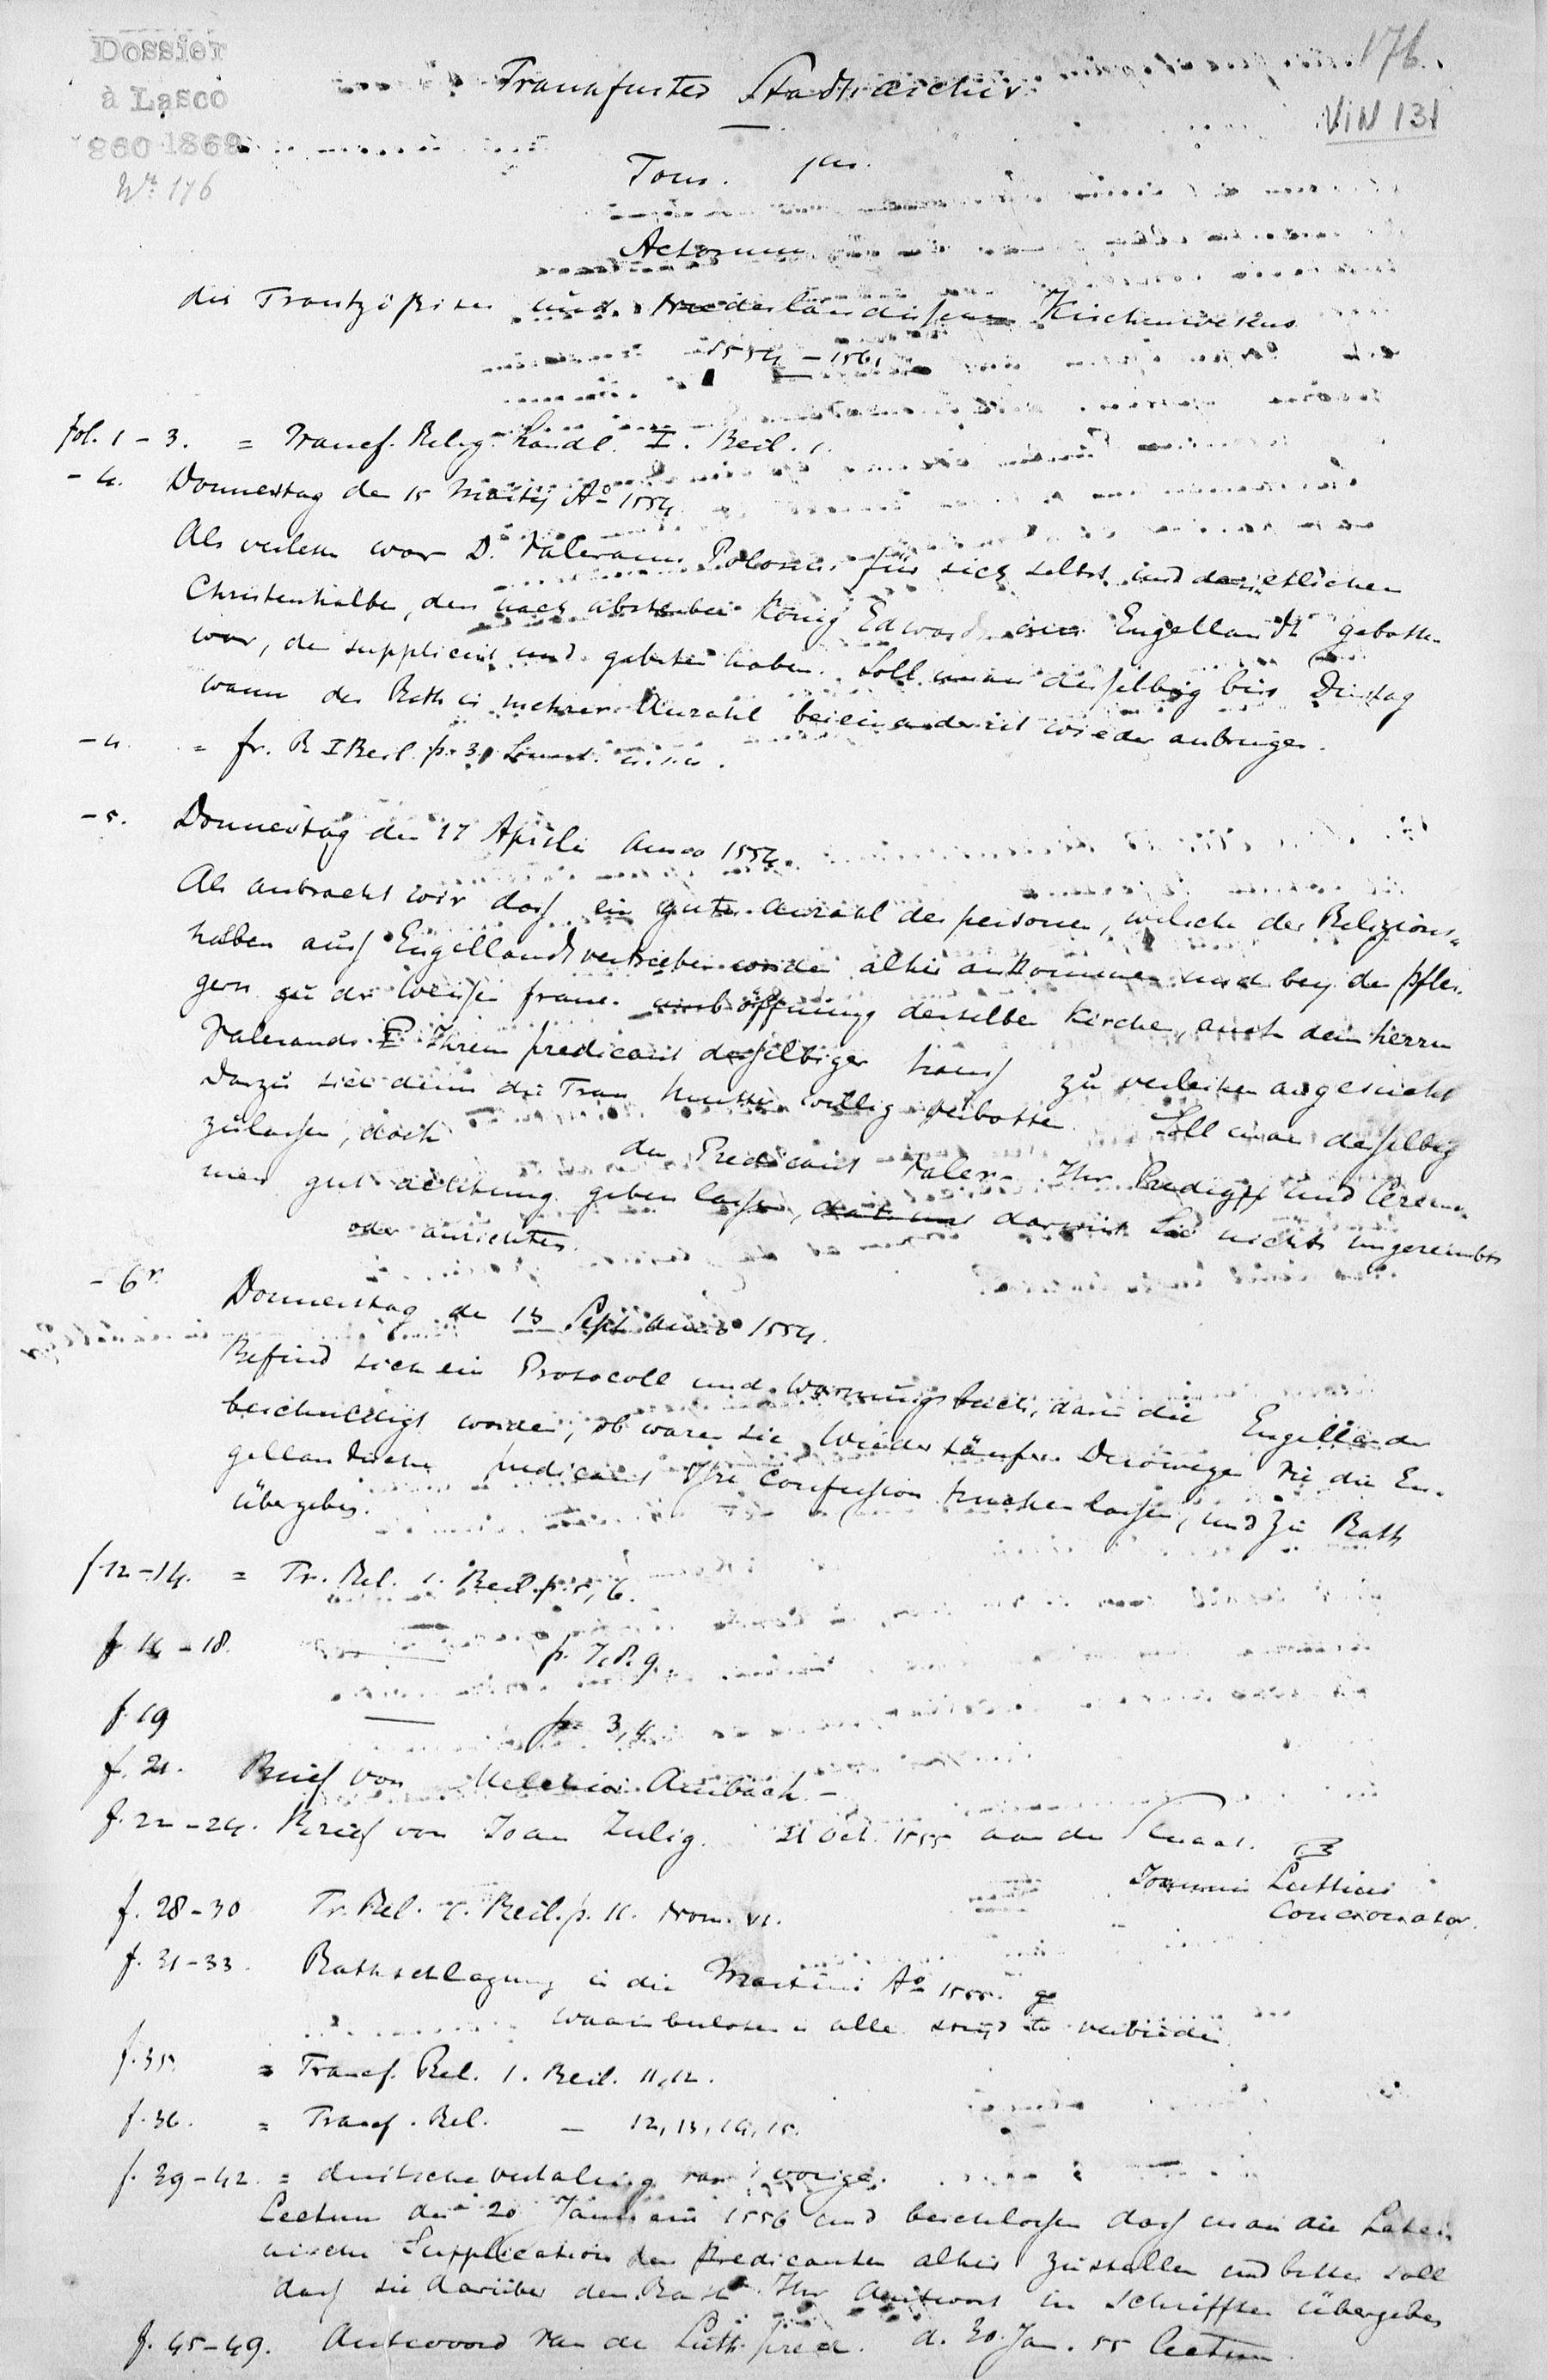 Dossier
à Lasco
860-1869
Nr. 176
176.
VIN 131
Francfurter Stadtarchiv
Tom. 1us.
Actorum
des Frantzößisen und Niederländischen Kirchenwesens
1554 – 1561
fol. 1 – 3. = Francf. Relig. Handl. I. Beil. 1.
– 4. Donnerstag den 15 Martij Ao 1554
Als verlesen war D. Valeranus Polonus für sich selbst und der etlichen
Christenhalben, den nach absterben König Edwards aus Engellandt gebotten
war, de supplicirt und gebeten haben. Soll man desselbig bis Dinstag
wann der Rath in mehrer Anzahl beieinander ist wieder anbringen.
– 4. = fr. R I Beil. p. 3,
– 5. Donnerstag den 17 Aprilis anno 1554.
Als anbracht wir dass ein gute Anzahl der personen, welche der Religions-
halben auss Engellandt vertrieben worden alhie ankommen und bey den pfle-
gern zu der Weissen frauen umb öffnung derselben Kirche, auch dem herrn
Valerando P Ihrem predicant desselbigen hauss zu verleihen angesucht
Darzu sich dann die Frau willig erbotten. Soll man desselbig
zulassen, doch den Predicant Valer. Ihr Predigt und Ceremo-
nien gut achtung geben lassen, damit Sie nichts ungereimbts
oder anrichten.
– 6r. Donnerstag den 13 Sept anno 1554.
Befind sich ein Protocoll und Warnungsbuch, darin die Engellander
beschuldigt worden, ob waren sie Wiedertäufer. Derowegen sie die En-
gellandische predicant Ihre Confession trucken lassen, und zu Rath
übergeben.
f. 12 – 14. = Fr. Rel. 1. Beil. p. 5, 6.
f. 14 – 18. —— p. 7, 8. 9.
f. 19 —— p. 3, 4.
f. 21. Brief von Melchior Ambach. –
f. 22 – 24. Brief von Joan Lulig. 31 Oct. 1555 aan den Senaat.
Joannis Lullius
Concionator.
f. 28 – 30 Fr. Rel. I. Beil. p. 11. Num. VI.
f. 31 – 33. Rathschlagung in die Martini Ao 1555.
waarin besloten is alle to verbieden
f. 35. = Francf. Rel. 1. Beil. 11, 12.
f. 36. = Francf. Rel. – 12, 13, 14, 15.
f. 39 – 42. = duitsche vertaling van 't vorige.
Lectum den 20 Januarii 1556 und beschlossen dass man die Latei-
nische Supplication den Predicanten alhie zustellen und bitten soll
dass sie darüber dem Rath Ihr Antwort in Schrifften übergeben
f. 45 – 49. Antwoord van de Luth. pred. d. 30. Jan. 55 lectum.